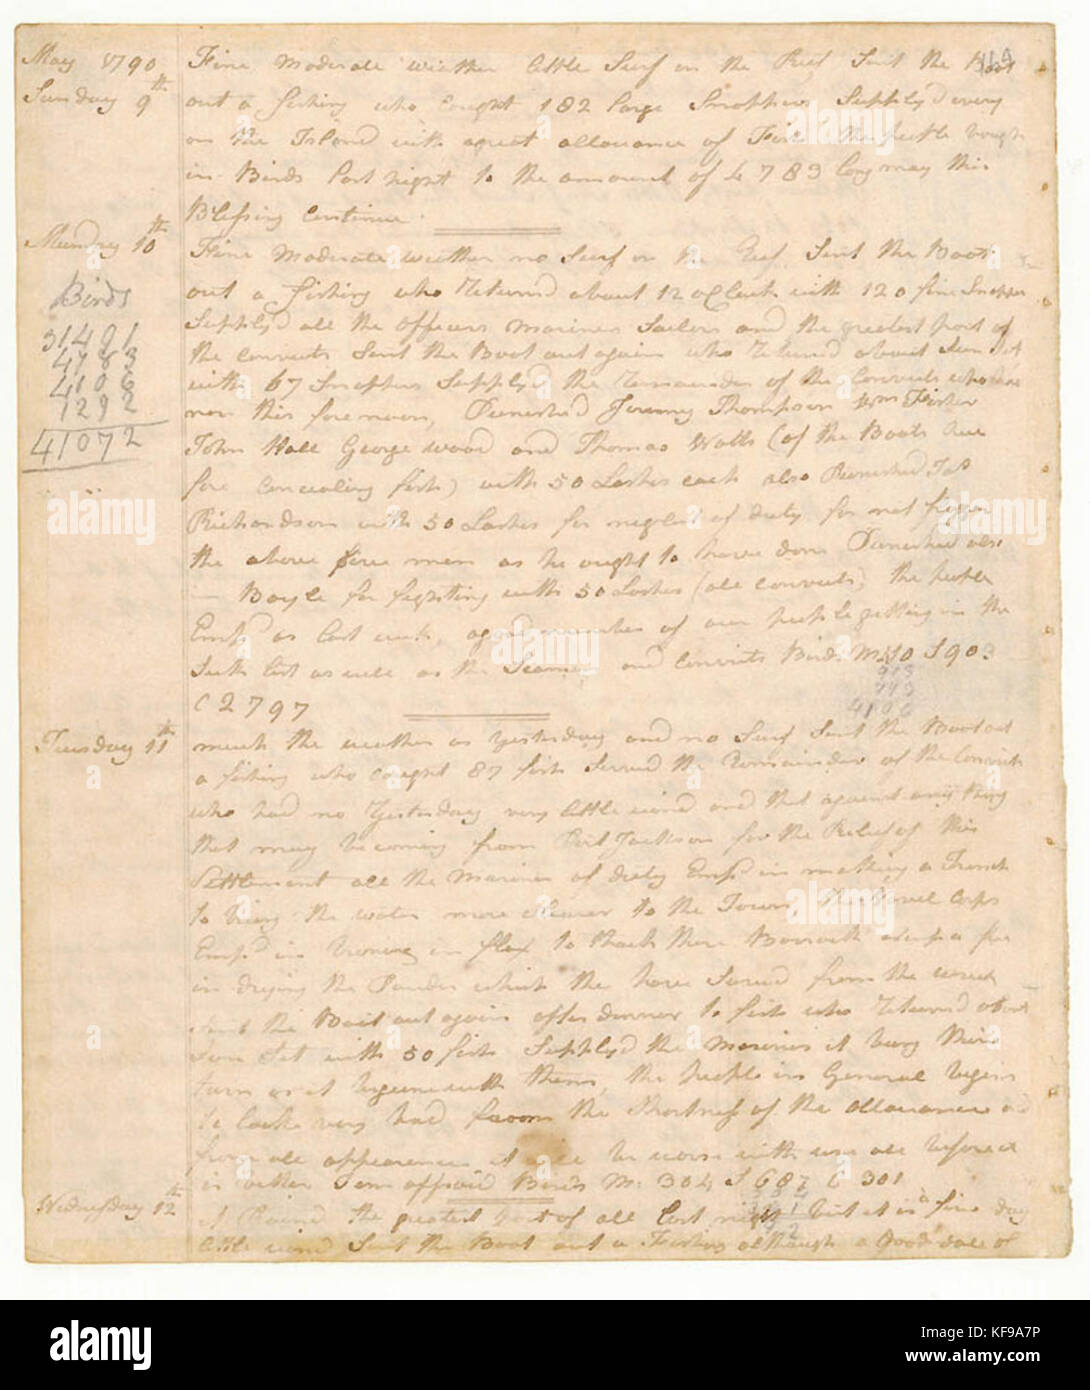 May 1790
Sunday 9th
Fine Moderate weather little Surf on the Reef Sent the Boat
out a fishing who Caught 182 large Snappers Supply'd every
on the Island with a great allowance of Fish the people brought
in Birds last night to the amount of 4783 long may this
Blessing Continue
Munday 10th
Birds
31491
4783
4106
1292
41072
Fine Moderate weather no Surf on the Reef Sent the Boat
out a fishing who Returned about 12 oClock with 120 fine Snapper
Supply'd all the officers Marines Sailers and the greatest part of
the Convicts Sent the Boat out again who Returnd about Sun Set
with 67 Snappers Supply'd the Remainder of the Convicts who had
non this forenoon, Punished Jeremy Thompson Wm Fisher
John Hall George wood and Thomas Watts (of the Boats Crue
for Concealing fish) with 50 Lashes each also Punished Jas
Richardson with 50 Lashes for neglect of duty for not
the above five men as he ought to have done Punished also
— Boyle for fighting with 50 Lashes (all Convicts) the people
Empd as last week, a good number of our people getting in the
Sick list as well as the Seamen and Convicts Birds M 510 S 903
C 2797
Tuesday 11th
much the weather as Yesterday and no Surf Sent the Boat out
a fishing who Caught 87 fish Served the Remainder of the Convicts
who had no Yesterday very little wind and that against any thing
that may be coming from Port Jackson for the Relief of this
Settlement all the Marines of duty Empd in making a Trench
to bring the water more nearer to the Town the Corps
Empd in bringing in flax to thach there Barrack
in drying the Powder which the have Saved from the wreck
Sent the Boat out again after dinner to fish who Returnd about
Sun Set with 50 fish Supply'd the Marines it being their
turn as it begun with them, the people in General begins
to look very bad from the Shortness of the allowance and
from all appearence it will be worse with us all before it
is better I am affraid Birds M 304 S 687 C 301
Wednesday 12th
it Raind the greatest part of all last night but it is a fine day
little wind Sent the Boat out a Fishing although a good deal of
alamy
a
Image ID: KF9A7P
www.alamy.com